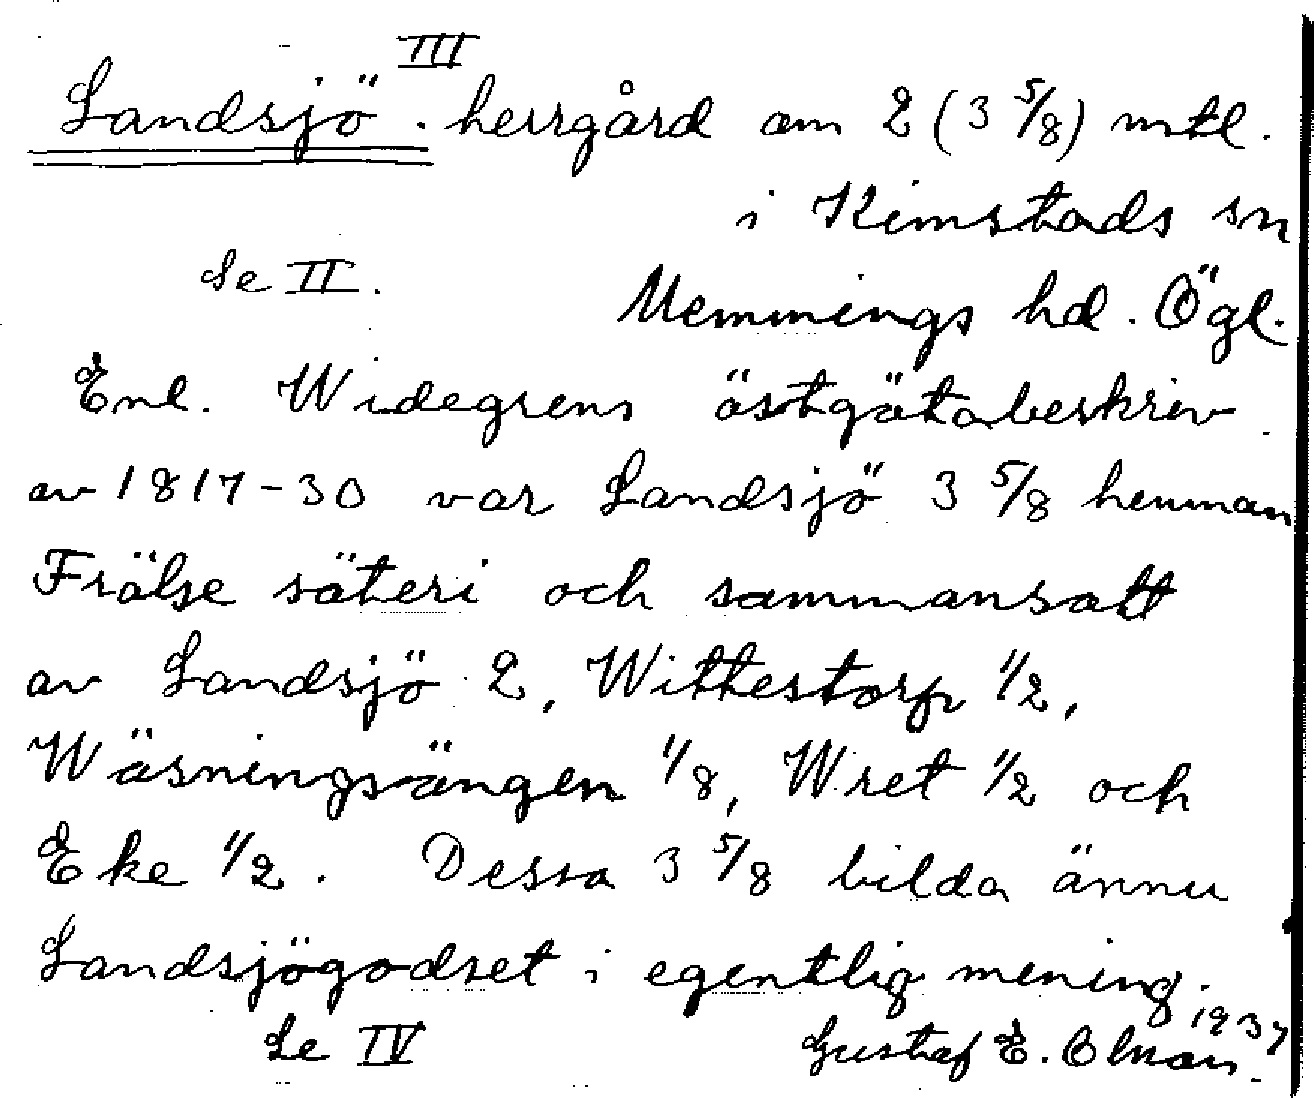 III
Landsjö. herrgård om 2 (3 5/8) mtl.
i Kimstads sn
Se II.
Memmings hd. Ögl.
Enl. Widegrens östgötabeskriv.
av 1817-30 var Landsjö 3 5/8 hemman
Frälse säteri och sammansatt
av Landsjö 2, Wittestorp 1/2,
Wäsningsängen 1/8, Wret 1/2 och
Eke 1/2. Dessa 3 5/8 bilda ännu
Landsjögodset i egentlig mening.
Se IV
Gustaf E. 1937